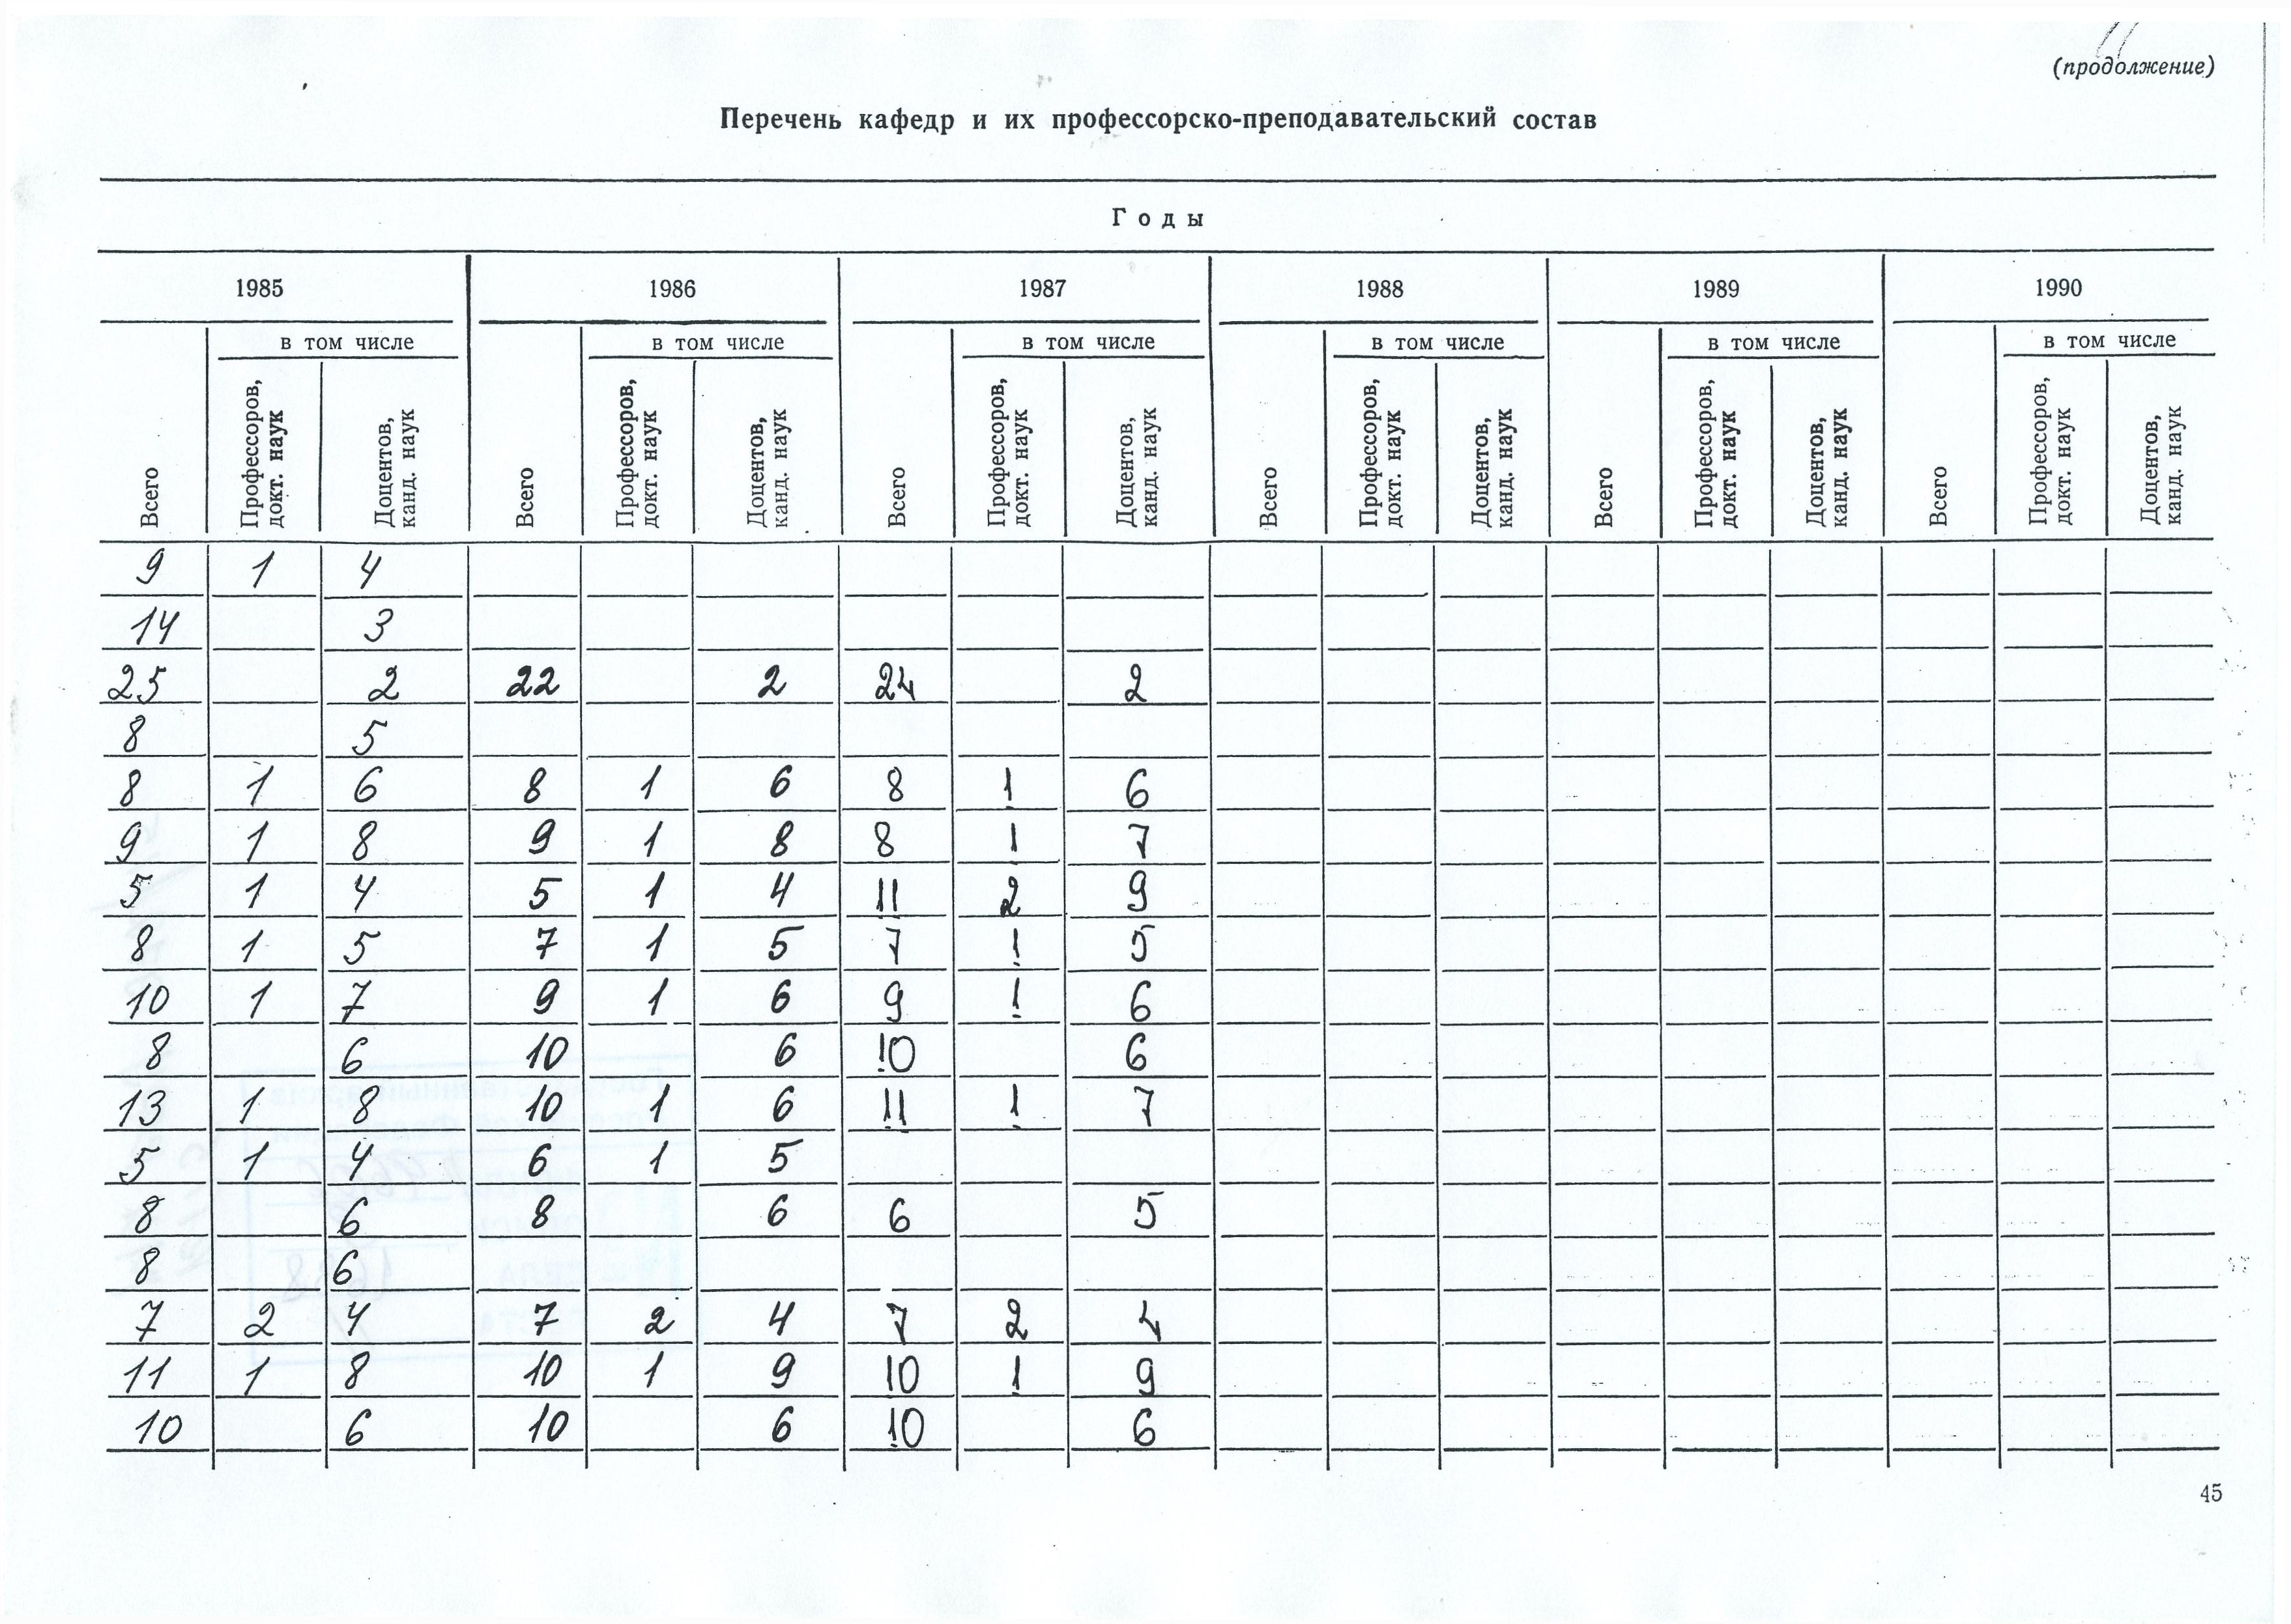 (продолжение)
Перечень кафедр и их профессорско-преподавательский состав
Годы
1985 1986 1987 1988 1989 1990
в том числе в том числе в том числе в том числе в том числе в том числе
Всего Профессоров, докт. наук Доцентов, канд. наук Всего Профессоров, докт. наук Доцентов, канд. наук Всего Профессоров, докт. наук Доцентов, канд. наук Всего Профессоров, докт. наук Доцентов, канд. наук Всего Профессоров, докт. наук Доцентов, канд. наук Всего Профессоров, докт. наук Доцентов, канд. наук
9 1 4
14 3
25 2 22 2 24 2
8 5
8 1 6 8 1 6 8 1 6
9 1 8 9 1 8 8 1 7
5 1 4 5 1 4 11 2 9
8 1 5 7 1 5 7 1 5
10 1 7 9 1 6 9 1 6
8 6 10 6 10 6
13 1 8 10 1 6 11 1 7
5 1 4 6 1 5
8 6 8 6 6 5
8 6
7 2 4 7 2 4 7 2 4
11 1 8 10 1 9 10 1 9
10 6 10 6 10 6
45